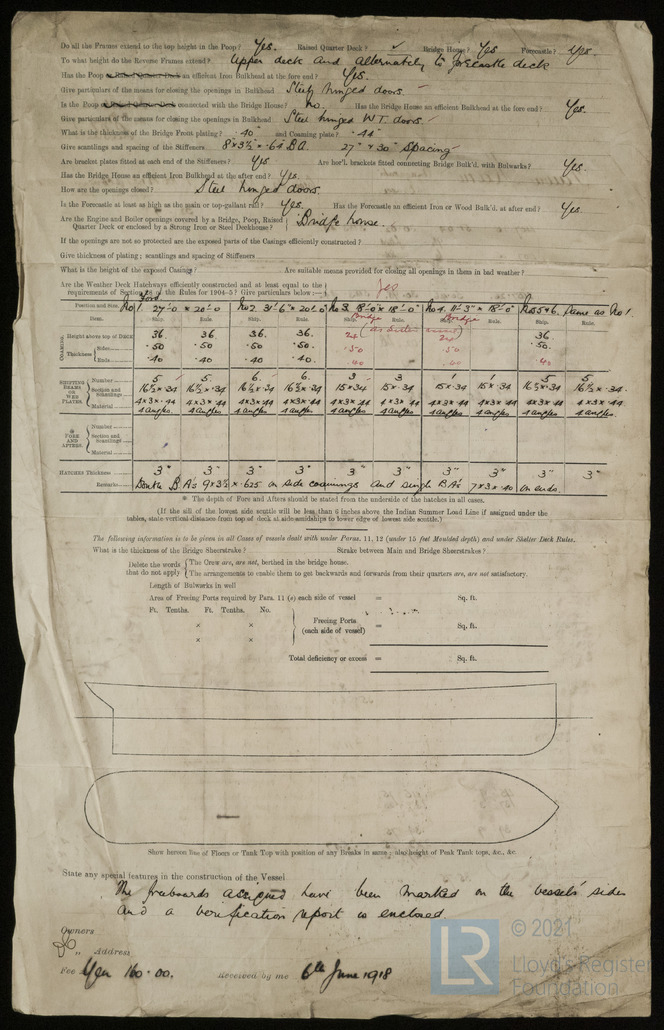 Do all the Frames extend to the top height in the Poop? Yes. Raised Quarter Deck? ✓ Bridge House? Yes Forecastle? Yes.
To what height do the Reverse Frames extend? Upper deck and alternately to forecastle deck
Has the Poop or Raised Quarter Deck an efficient Iron Bulkhead at the fore end? Yes.
Give particulars of the means for closing the openings in Bulkhead Steel hinged doors
Is the Poop connected with the Bridge House? No. Has the Bridge House an efficient Bulkhead at the fore end? Yes.
Give particulars of the means for closing the openings in Bulkhead Steel hinged W.T. doors
What is the thickness of the Bridge Front plating? .40" and Coaming plate? .44"
Give scantlings and spacing of the Stiffeners 8 x 3½ x .64 B.A. 27" & 30" Spacing
Are bracket plates fitted at each end of the Stiffeners? Yes Are hor'l. brackets fitted connecting Bridge Bulk'd. with Bulwarks? Yes.
Has the Bridge House an efficient Iron Bulkhead at the after end? Yes.
How are the openings closed? Steel hinged doors
Is the Forecastle at least as high as the main or top-gallant rail? Yes. Has the Forecastle an efficient Iron or Wood Bulk'd. at after end? Yes.
Are the Engine and Boiler openings covered by a Bridge, Poop, Raised Quarter Deck or enclosed by a Strong Iron or Steel Deckhouse? Bridge house.
If the openings are not so protected are the exposed parts of the Casings efficiently constructed?
Give thickness of plating; scantlings and spacing of Stiffeners
What is the height of the exposed Casing? Are suitable means provided for closing all openings in them in bad weather?
Are the Weather Deck Hatchways efficiently constructed and at least equal to the requirements of Section of the Rules for 1904-5? Give particulars below:— Yes
Position and Size No 1 Ford 27'-0 x 20'-0 No 2. 31'-6" x 20'-0" No 3. 18'-0" x 18'-0" No 4. 11'-3" x 18'-0" No 5 & 6. Same as No 1.
Item. Ship. Rule. Ship. Rule. Ship. Bridge Rule. Ship. Bridge Rule. Ship. Rule.
COAMING. Height above top of DECK 36. 36. 36. 36. 24 24 36.
Thickness Sides .50 .50 .50 .50 .50 .50 .50.
Ends .40 .40 .40 .40. .40 .40 .40
SHIFTING BEAMS OR WEB PLATES. Number 5 5 6. 6. 3 3 1 1 5 5
Sections and Scantlings 16½ x .34 16½ x .34 16½ x .34 16½ x .34 15 x .34 15 x .34 15 x .34 15 x .34 16½ x .34 16½ x .34.
4 x 3 x .44 4 x 3 x .44 4 x 3 x .44 4 x 3 x .44 4 x 3 x .44 4 x 3 x .44 4 x 3 x .44 4 x 3 x .44 4 x 3 x .44 4 x 3 x .44
Material 4 angles. 4 angles. 4 angles 4 angles 4 angles. 4 angles. 4 angles. 4 angles. 4 angles. 4 angles.
* FORE AND AFTERS. Number
Section and Scantlings
Material
HATCHES Thickness 3" 3" 3" 3" 3" 3" 3" 3" 3" 3"
Remarks Double B.A's 9 x 3½ x .625 on side coamings and single B.A's 7 x 3 x .40 on ends.
* The depth of Fore and Afters should be stated from the underside of the hatches in all cases.
(If the sill of the lowest side scuttle will be less than 6 inches above the Indian Summer Load Line if assigned under the tables, state vertical distance from top of deck at side amidships to lower edge of lowest side scuttle.)
The following information is to be given in all Cases of vessels dealt with under Paras. 11, 12 (under 15 feet Moulded depth) and under Shelter Deck Rules.
What is the thickness of the Bridge Sheerstrake? Strake between Main and Bridge Sheerstrakes?
Delete the words that do not apply { The Crew are, are not, berthed in the bridge house.
The arrangements to enable them to get backwards and forwards from their quarters are, are not satisfactory.
Length of Bulwarks in well
Area of Freeing Ports required by Para. 11 (e) each side of vessel = Sq. ft.
Ft. Tenths. Ft. Tenths. No.
× × Freeing Ports (each side of vessel) = Sq. ft.
× ×
Total deficiency or excess = Sq. ft.
Show hereon line of Floors or Tank Top with position of any Breaks in same; also height of Peak Tank tops, &c., &c.
State any special features in the construction of the Vessel
The freeboards assigned have been marked on the vessel's sides
and a verification report is enclosed.
Owners
„ Address
Fee Yen 160.00. Received by me 6th June 1918
LR © 2021
Lloyd's Register
Foundation